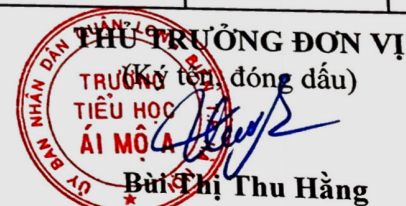 THỦ TRƯỞNG ĐƠN VỊ
(Ký tên, đóng dấu)
ỦY BAN NHÂN DÂN QUẬN LONG BIÊN
TRƯỜNG
TIỂU HỌC
ÁI MỘ A
Bùi Thị Thu Hằng